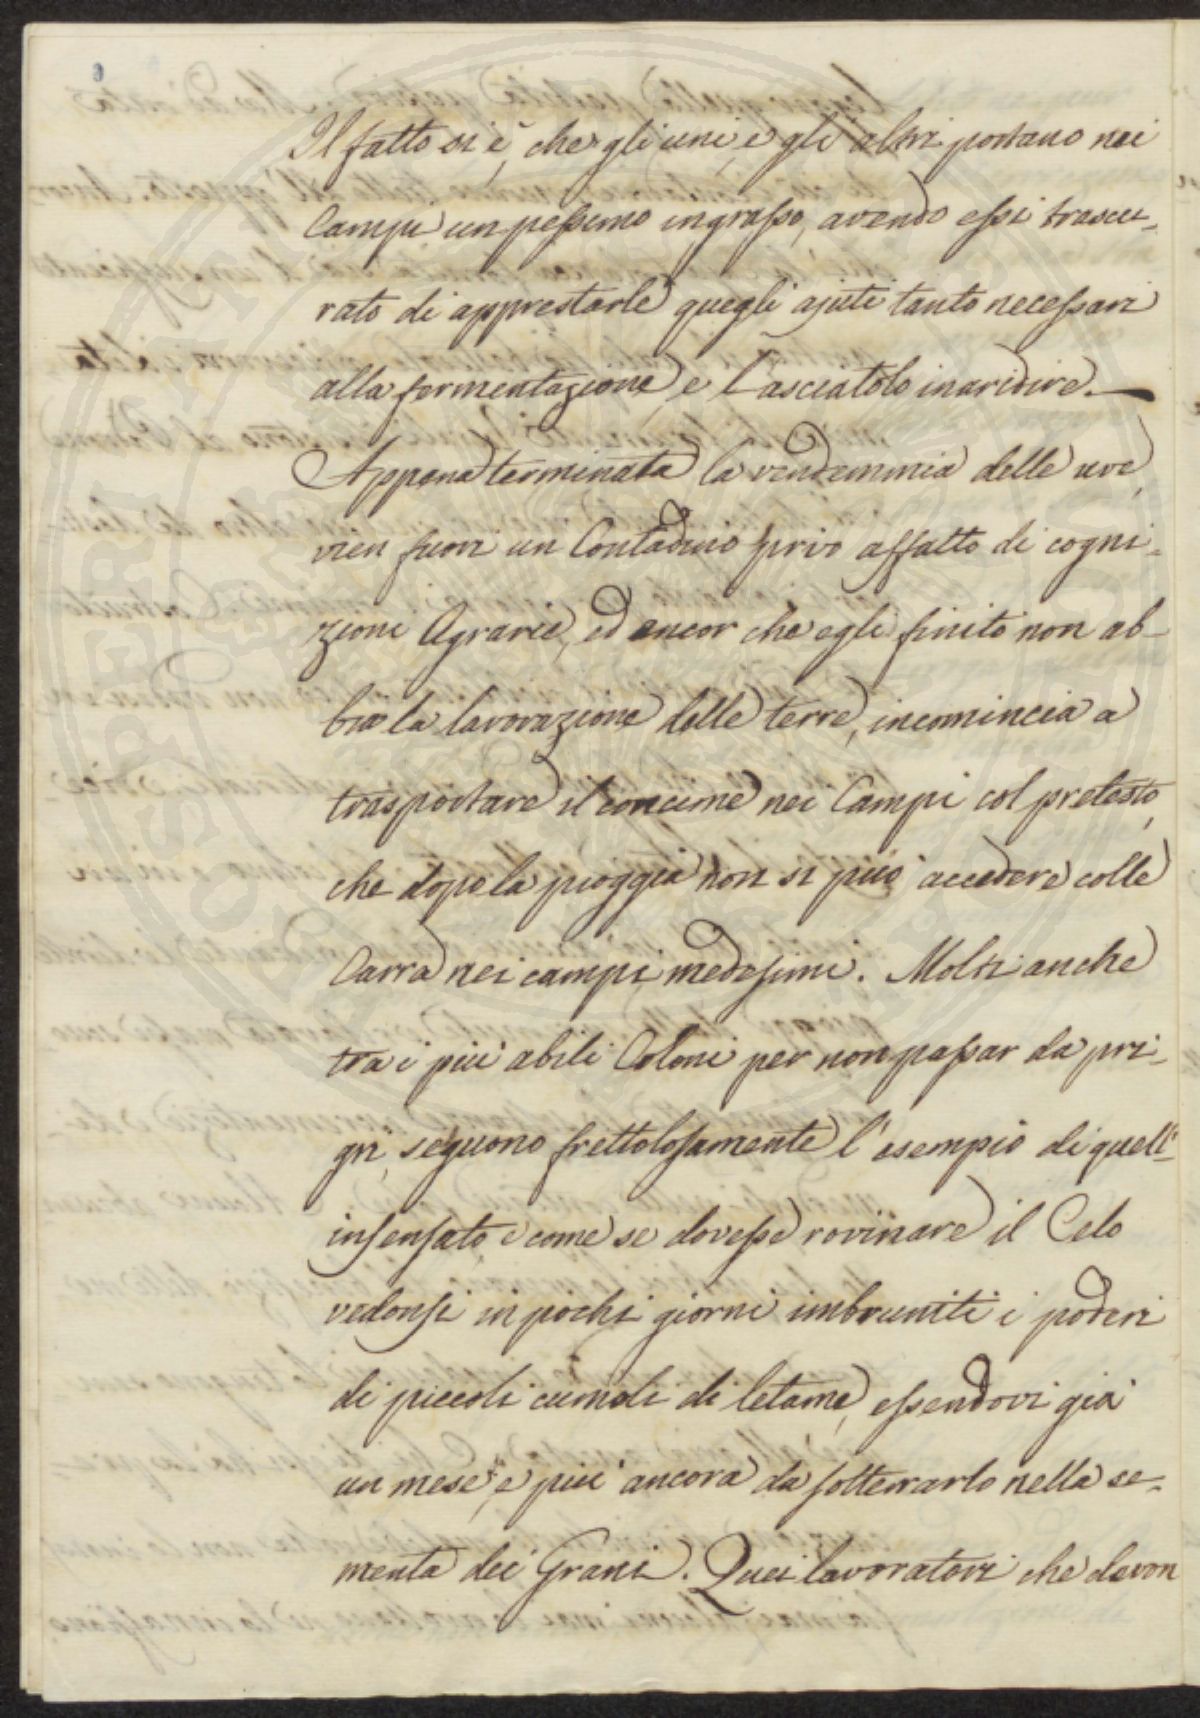 Il fatto si è, che gli uni, e gli altri portano nei
Campi un pessimo ingrasso, avendo essi trascu-
rato di apprestarle quegli ajuti tanto necessari
alla fermentazione, e Lasciatolo inaridire.—
Appena terminata la vendemmia delle uve,
vien fuori un Contadino privo affatto di cogni-
zioni Agrarie, ed ancor che egli finito non ab-
bia la lavorazione delle terre, incomincia a
trasportare il concime nei Campi col pretesto,
che dopo la pioggia non si può accedere colle
Carra nei campi medesimi. Molti anche
tra i più abili Coloni per non passar da pri-
gri, seguono frettolosamente l'esempio di quell'
insensato, e come se dovesse rovinare il Celo
vedonsi in pochi giorni imbruniti i poderi
di piccoli cumoli di letame, essendovi già
un mese, e più ancora da sotterrarlo nella se-
menta dei Grani. Quei lavoratori che devon